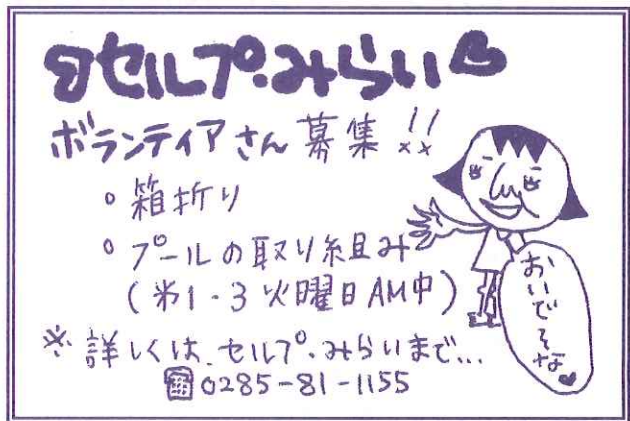 セルプ・みらい
ボランティアさん募集!!
○箱折り
○プールの取り組み
(第1・3火曜日AM中)
※詳しくは、セルプ・みらいまで…
☎0285-81-1155
おいで
そな